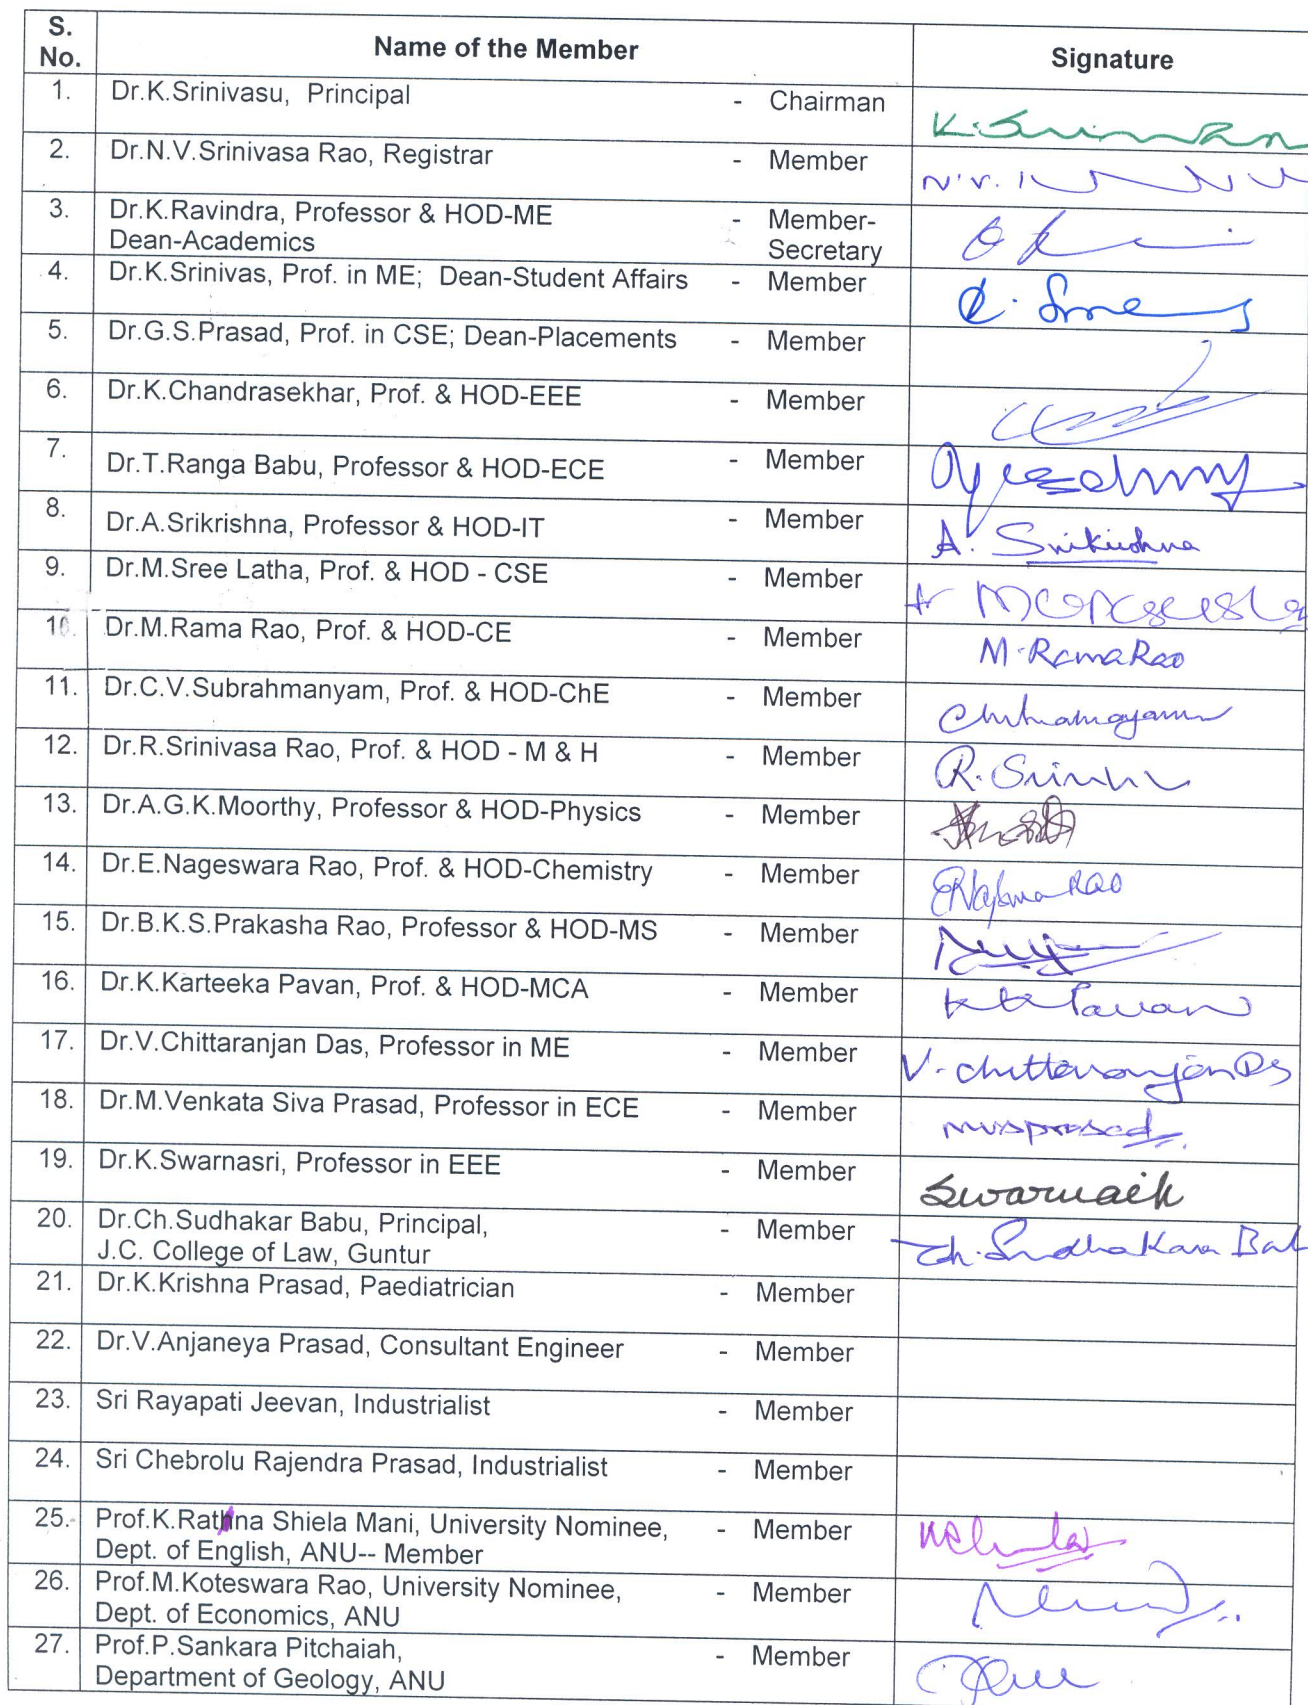 S. No. Name of the Member Signature
1. Dr.K.Srinivasu, Principal - Chairman
2. Dr.N.V.Srinivasa Rao, Registrar - Member
N.V.
3. Dr.K.Ravindra, Professor & HOD-ME - Member-
Dean-Academics Secretary
4. Dr.K.Srinivas, Prof. in ME; Dean-Student Affairs - Member
5. Dr.G.S.Prasad, Prof. in CSE; Dean-Placements - Member
6. Dr.K.Chandrasekhar, Prof. & HOD-EEE - Member
7. Dr.T.Ranga Babu, Professor & HOD-ECE - Member
8. Dr.A.Srikrishna, Professor & HOD-IT - Member
A. Srikrishna
9. Dr.M.Sree Latha, Prof. & HOD - CSE - Member
10. Dr.M.Rama Rao, Prof. & HOD-CE - Member
M.RamaRao
11. Dr.C.V.Subrahmanyam, Prof. & HOD-ChE - Member
12. Dr.R.Srinivasa Rao, Prof. & HOD - M & H - Member
13. Dr.A.G.K.Moorthy, Professor & HOD-Physics - Member
14. Dr.E.Nageswara Rao, Prof. & HOD-Chemistry - Member
15. Dr.B.K.S.Prakasha Rao, Professor & HOD-MS - Member
16. Dr.K.Karteeka Pavan, Prof. & HOD-MCA - Member
17. Dr.V.Chittaranjan Das, Professor in ME - Member
V. Chittaranjan Das
18. Dr.M.Venkata Siva Prasad, Professor in ECE - Member
mvsprasad
19. Dr.K.Swarnasri, Professor in EEE - Member
20. Dr.Ch.Sudhakar Babu, Principal, - Member
J.C. College of Law, Guntur
Ch. Sudhakara Bab
21. Dr.K.Krishna Prasad, Paediatrician - Member
22. Dr.V.Anjaneya Prasad, Consultant Engineer - Member
23. Sri Rayapati Jeevan, Industrialist - Member
24. Sri Chebrolu Rajendra Prasad, Industrialist - Member
25. Prof.K.Rathna Shiela Mani, University Nominee, - Member
Dept. of English, ANU-- Member
26. Prof.M.Koteswara Rao, University Nominee, - Member
Dept. of Economics, ANU
27. Prof.P.Sankara Pitchaiah, - Member
Department of Geology, ANU